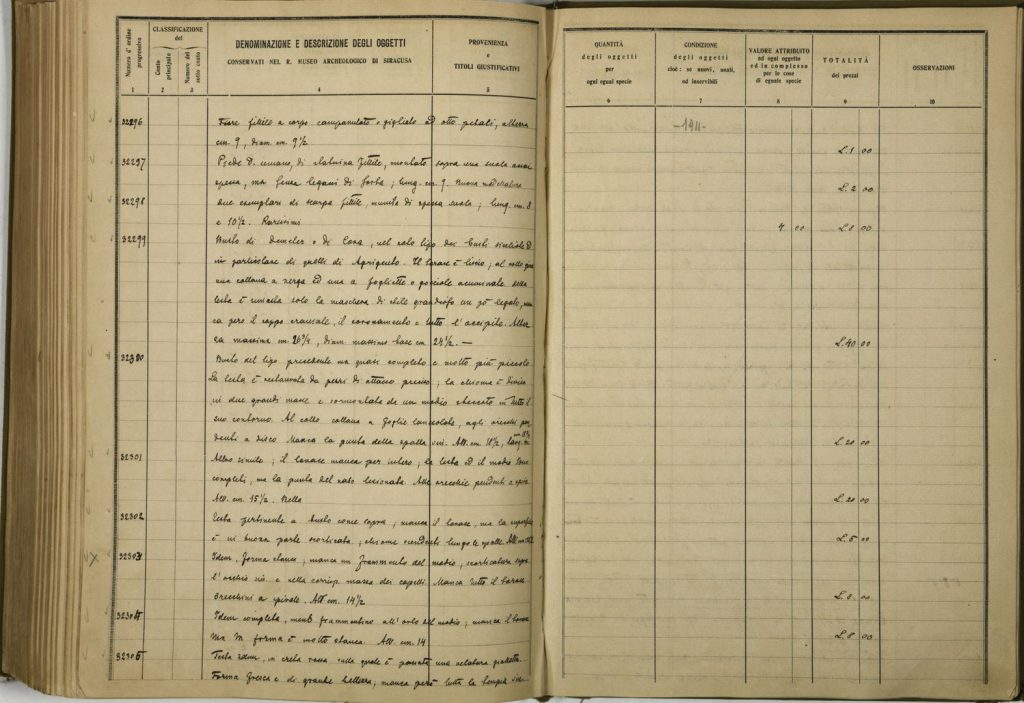 Numero d'ordine progressivo
CLASSIFICAZIONE
del
Conto principale
Numero del sotto conto
DENOMINAZIONE E DESCRIZIONE DEGLI OGGETTI
CONSERVATI NEL R. MUSEO ARCHEOLOGICO DI SIRACUSA
PROVENIENZA
e
TITOLI GIUSTIFICATIVI
1 2 3 4 5
32296 fittile a corpo campanulato o gigliato ad otto petali, altezza
cm. 9, diam. cm. 9 1/2
32297 Piede D. umano, di statuina fittile, montato sopra una suola assai
spessa, ma senza legacci di sorta; lung. cm. 9. Buona modellatura
32298 due esemplari di scarpa fittile, munita di spessa suola; lung. cm. 8
e 10 1/2. Rarissimi
32299 Busto di Demeter o di Cora, nel solo tipo dei busti sicelioti ed
in particolare di quelli di Agrigento. Il torace è liscio; al collo
una collana a verga ed una a fogliette o gocciole; della
testa è rimasta solo la maschera di stile
ca però il coronamento e tutto l'occipite. Altez
za massima cm. 26 3/4, diam. massimo base cm. 24 1/2. —
32300 Busto del tipo precedente ma quasi completo e molto più piccolo.
La testa è restaurata da pezzi di attacco preciso; la chioma è divisa
in due grandi masse e sormontata da un modio sbeccato in tutto il
suo contorno. Al collo collana a foglie lanceolate, agli orecchi pen
denti a disco. Manca la punta della spalla sin. Alt. cm. 18 1/2,
32301 Altro simile; il torace manca per intero; la testa ed il modio sono
completi, ma la punta del naso lesionata. Alle orecchie pendenti a
Alt. cm. 15 1/2. Bella
32302 Testa pertinente a busto come sopra, manca il torace, ma la superficie
è in buona parte scorticata; chiome scendenti lungo le spalle.
32303 Idem, forma stanca, manca un frammento del modio, scorticatura sopra
l'occhio sin. e nella corrisp. massa dei capelli. Manca tutto il torace
Orecchini a spirale. Alt. cm. 14 1/2
32304 Idem completa, meno frammentino all'orlo del modio; manca il torace
Ma la forma è molto stanca. Alt. cm. 14
32305 Testa idem, in creta rossa sulla quale è passata una
Forma fresca e di grande bellezza, manca però tutta la
QUANTITÀ
degli oggetti
per
ogni egual specie
CONDIZIONE
degli oggetti
cioè: se nuovi, usati,
od inservibili
VALORE ATTRIBUITO
ad ogni oggetto
ed in complesso
per le cose
di eguale specie
TOTALITÀ
dei prezzi
OSSERVAZIONI
6 7 8 9 10
-1911-
L. 1 00
L. 2 00
4 00 L. 8 00
L. 40 00
L. 20 00
L. 20 00
L. 5 00
L. 8 00
L. 8 00